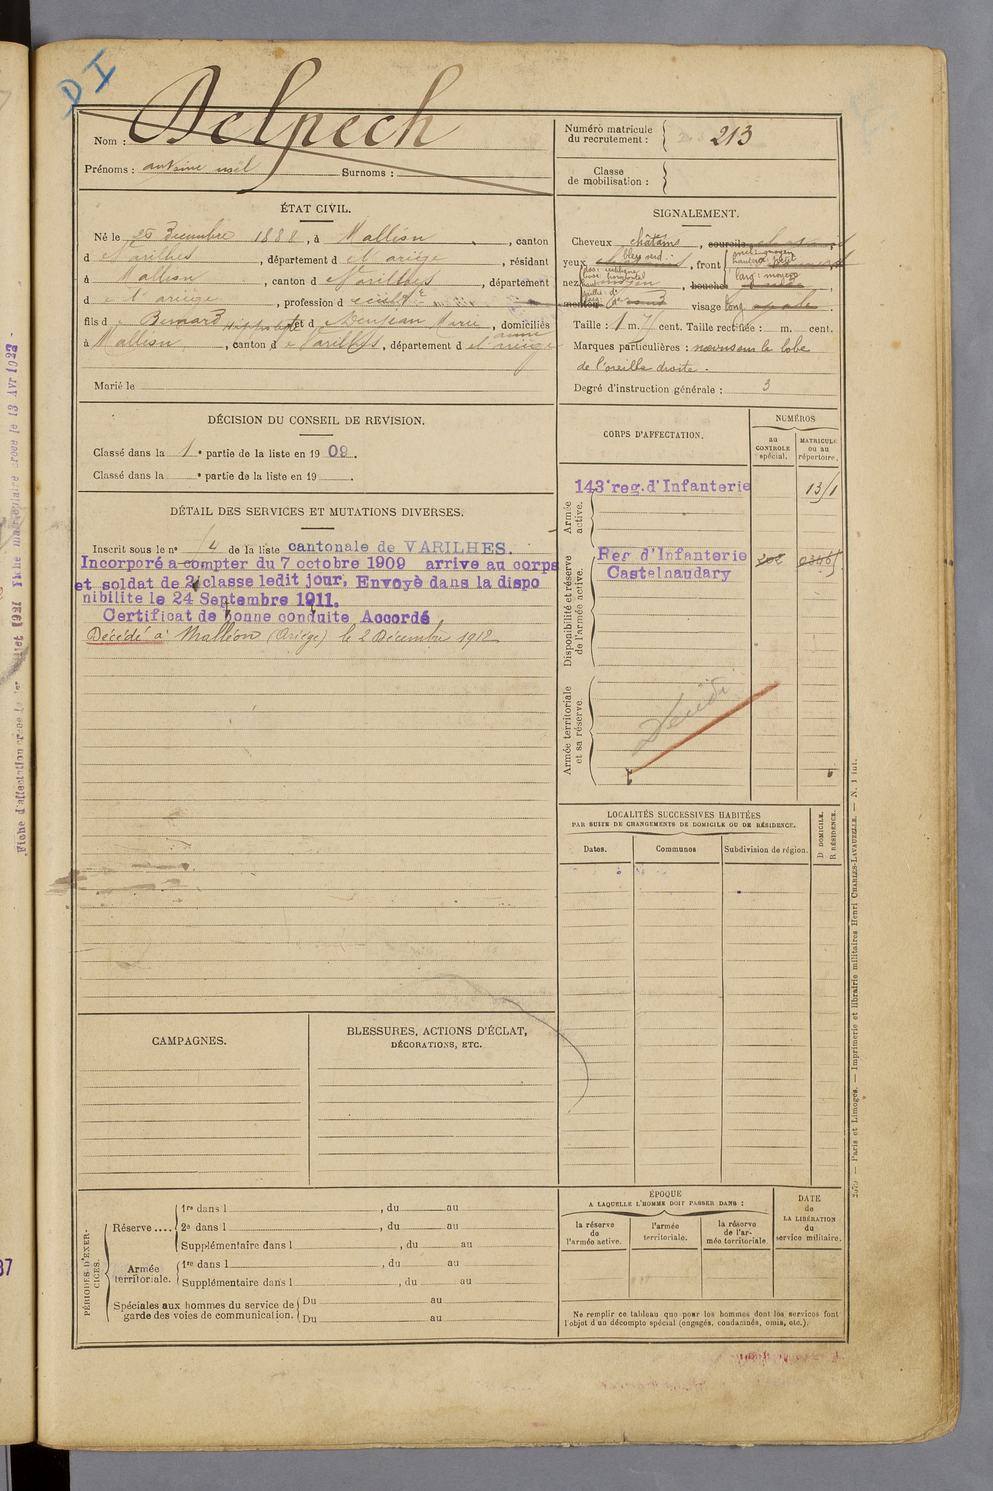 DI
Nom : Delpech
Prénoms : antoine noël Surnoms :
Numéro matricule
du recrutement : 213
Classe
de mobilisation :
ÉTAT CIVIL.
Né le 25 Decembre 1888, à Malléon, canton
d e Varilhes, département d el ariège, résidant
à Malléon, canton d e Varilhes, département
d e l'ariège, profession d
fils d Bernard Hippolyte et d e Denjean Marie anne, domiciliés
à Malléon, canton d e Varilhes, département d el'ariège
Marié le
SIGNALEMENT.
Cheveux châtains, sourcils
yeux bleu verd., front
nez moyen, bouche
menton rond visage long
Taille : 1 m. 71 cent. Taille rectifiée : m. cent.
Marques particulières : nævus sur le lobe
de l'oreille droite.
Degré d'instruction générale : 3
DÉCISION DU CONSEIL DE REVISION.
Classé dans la 1e partie de la liste en 19 09.
Classé dans la e partie de la liste en 19 .
DÉTAIL DES SERVICES ET MUTATIONS DIVERSES.
Inscrit sous le n° 4 de la liste cantonale de VARILHES.
Incorporé a compter du 7 octobre 1909 arrive au corps
et soldat de 2e classe ledit jour, Envoyè dans la dispo
nibilite le 24 Septembre 1911.
Certificat de bonne conduite Accordé
Décédé à Malléon (Ariège) le 2 Décembre 1912
CORPS D'AFFECTATION.
NUMÉROS
au
CONTROLE
spécial.
MATRICULE
ou au
répertoire.
Armée
active.
143e reg. d'Infanterie
Disponibilité et réserve
de l'armée active.
Reg d'Infanterie
Castelnaudary
Armée territoriale
et sa réserve.
LOCALITÉS SUCCESSIVES HABITÉES
PAR SUITE DE CHANGEMENTS DE DOMICILE OU DE RÉSIDENCE.
Dates.
Communes
Subdivision de région.
D DOMICILE.
R RÉSIDENCE.
CAMPAGNES.
BLESSURES, ACTIONS D'ÉCLAT,
DÉCORATIONS, ETC.
PÉRIODES D'EXER-
CICES.
Réserve ....
1re dans l , du au
2e dans l , du au
Supplémentaire dans l , du au
Armée
territoriale.
1re dans l , du au
Supplémentaire dans l , du au
Spéciales aux hommes du service de
garde des voies de communication.
Du au
Du au
ÉPOQUE
A LAQUELLE L'HOMME DOIT PASSER DANS :
la réserve
de
l'armée active.
l'armée
territoriale.
la réserve
de l'ar-
mée territoriale.
DATE
de
LA LIBÉRATION
du
service militaire.
Ne remplir ce tableau que pour les hommes dont les services font
l'objet d'un décompte spécial (engagés, condamnés, omis, etc.).
Paris et Limoges. — Imprimerie et librairie militaires Henri CHARLES-LAVAUZELLE. — N. 1 int.
37